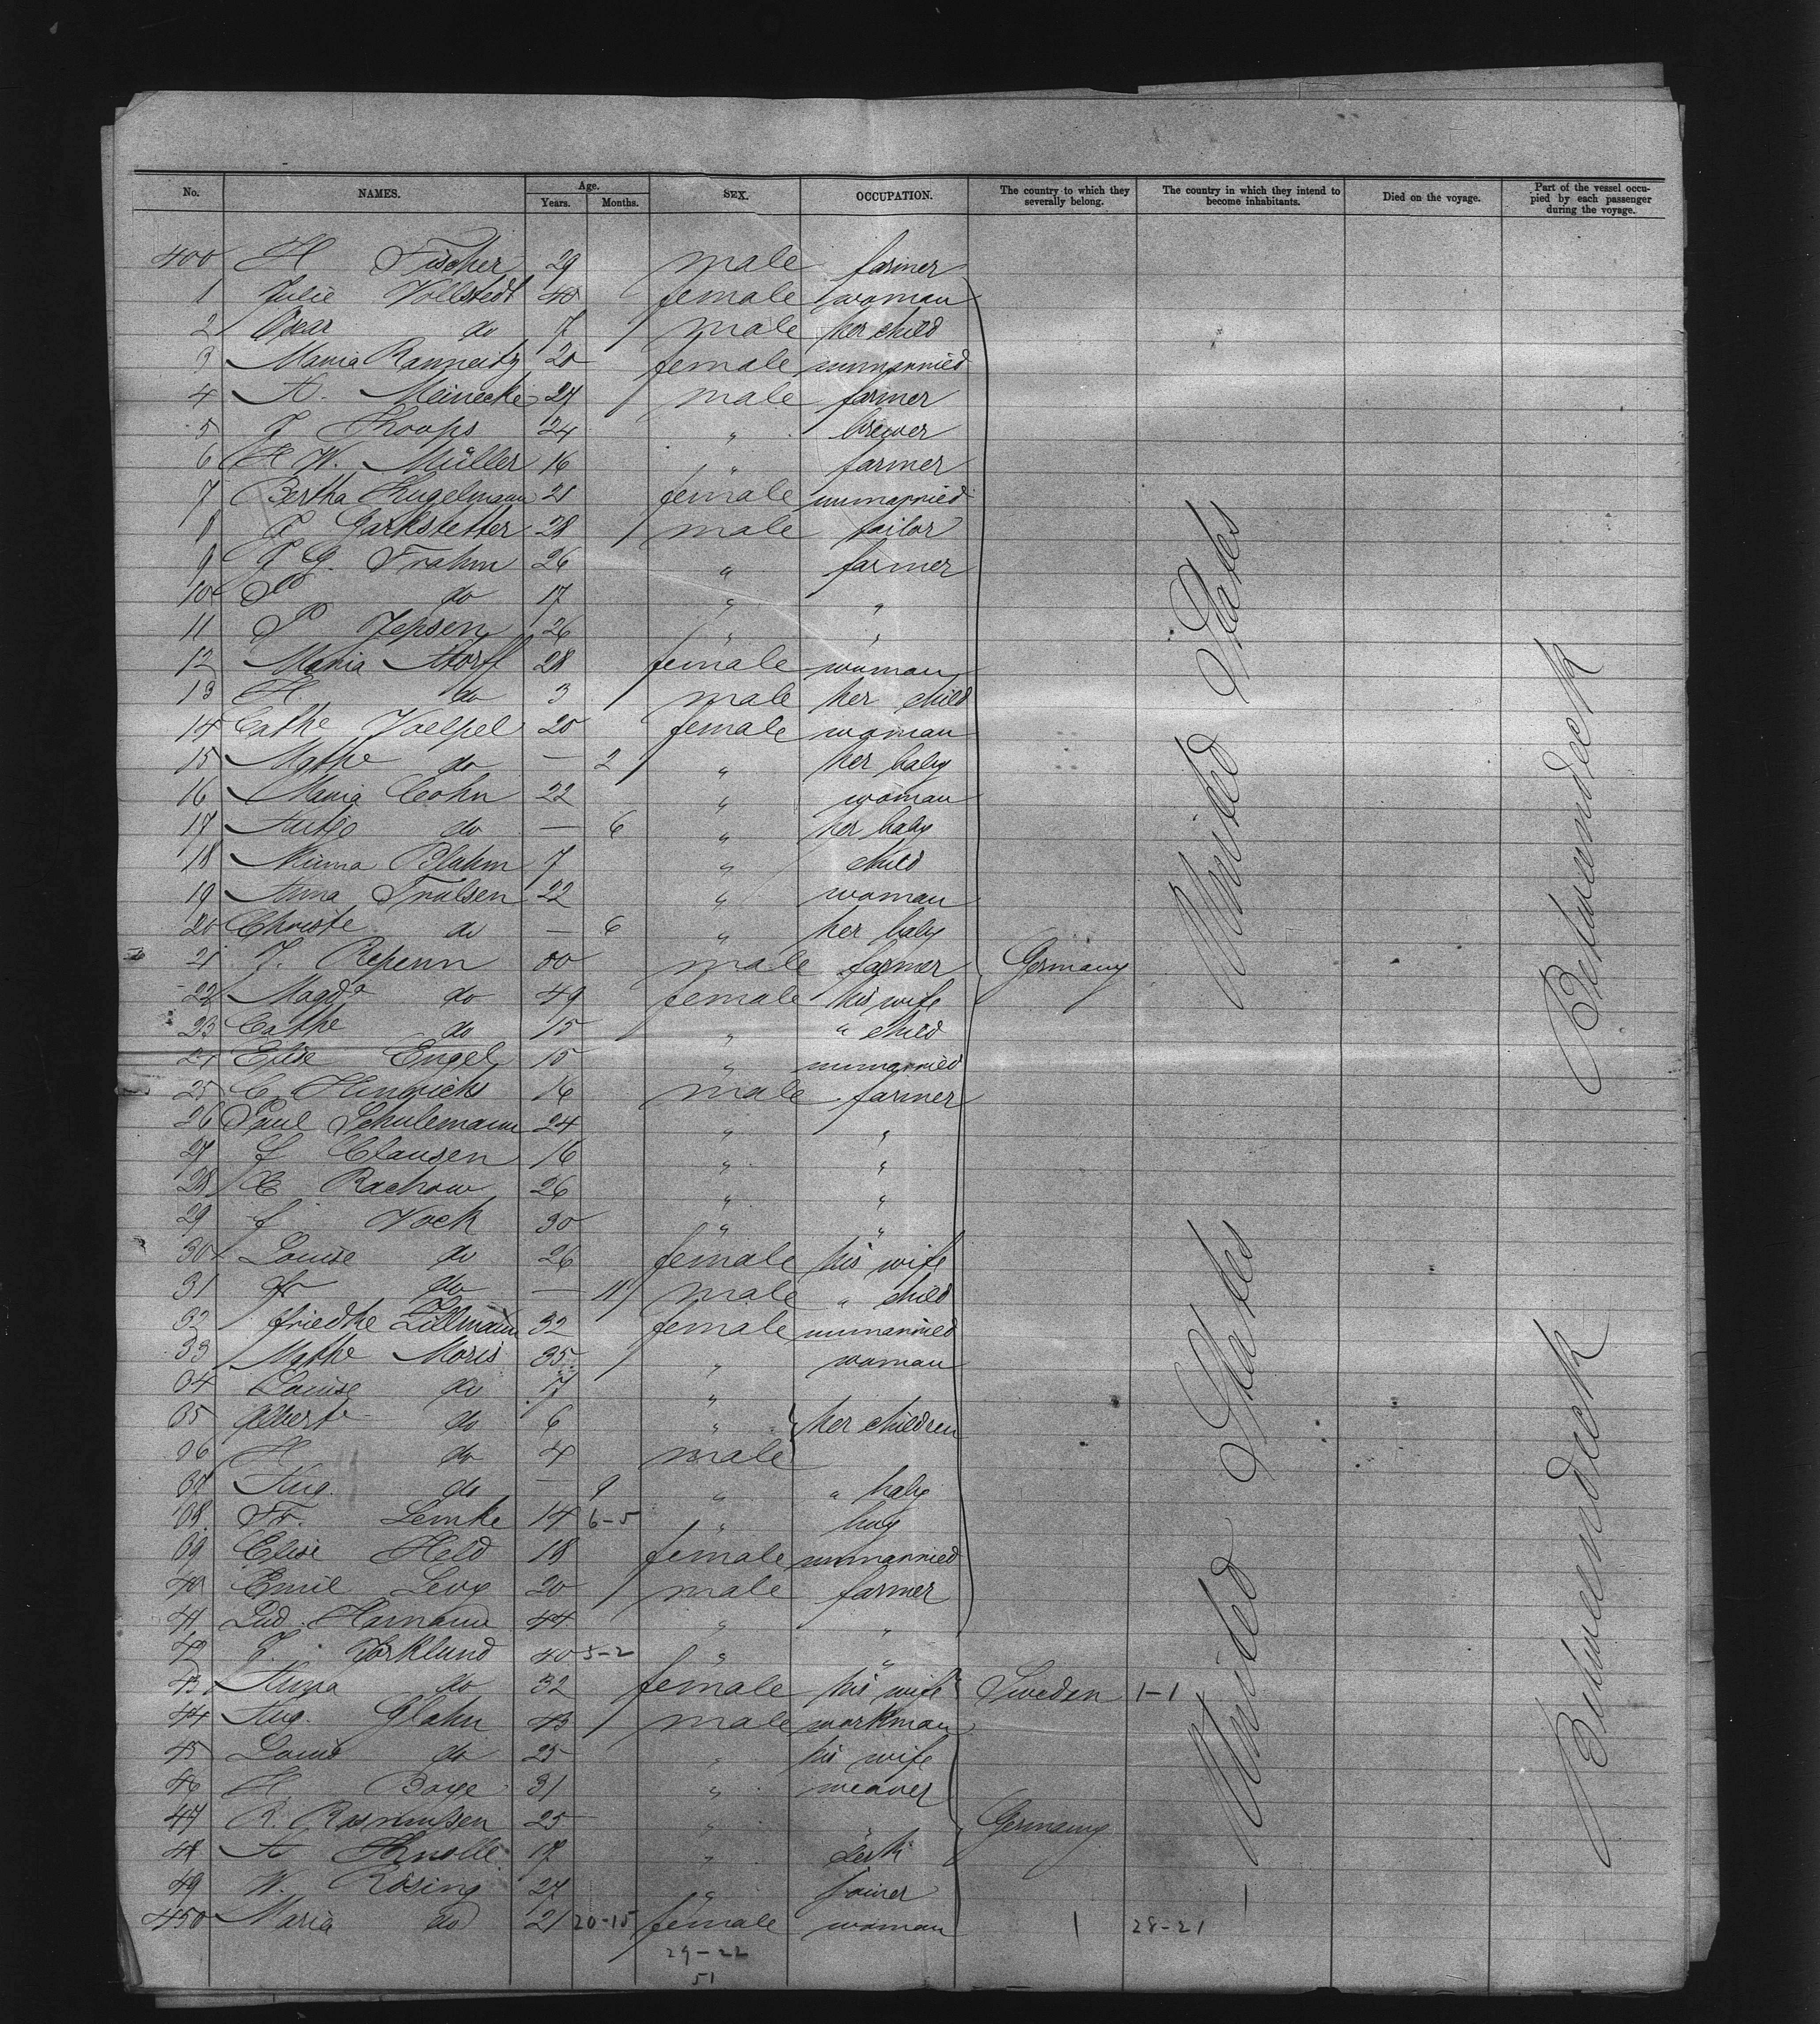 No. NAMES. Age. Years. Months. SEX. OCCUPATION. The country to which they severally belong. The country in which they intend to become inhabitants. Died on the voyage. Part of the vessel occupied by each passenger during the voyage.
400 H Fischer 29 male farmer
1 Julie Vollstedt 40 female woman
2 Oscar do 7 male her child
3 Maria 20 female unmarried
4 A. Meinecke 27 male farmer
5 J Koops 24 " brewer
6 H W. Müller 16 " farmer
7 Bertha Kugelmann 21 female unmarried
8 Garkstetter 28 male tailor
9 G. Frahm 26 " farmer
10 P do 17 " "
11 P Jepsen 26 " "
12 Maria Storff 28 female woman
13 H do 3 male her child
14 Cathe Voelpel 20 female woman
15 Mathe do — 2 " her baby
16 Maria Cohn 22 " woman
17 Antje do — 6 " her baby
18 Minna Bluhm 7 " child
19 Anna Trulsen 22 " woman
20 Christe do — 6 " her baby
21 J. Repenn male farmer Germany United States Betweendeck
22 Magda do 49 female his wife
23 Cathe do 15 " " child
24 Elise Engel 15 " unmarried
25 C. Hinrichs 16 male farmer
26 Paul Schulemann 24 " "
27 J Clausen 16 " "
28 C Rachow 26 " "
29 J Vock 30 " "
30 Louise do 26 female his wife
31 Fr do — 11 male " child
32 Friedke Zillmann 32 female unmarried
33 Mathe Moris 35 " woman
34 Louise do 7 "
35 Alberte do 6 " her children
36 H do 4 male
37 Aug. do — 9 " " baby
38 Fr. Lemke 14 6-5 " boy
39 Elise Held 18 female unmarried
40 Emil Levy 20 male farmer
41 Lud. Hamann 44 " "
42 J. Yorklund 40 5-2 " "
43 Anna do 32 female his wife Sweden 1-1
44 Aug. Glahn 43 male workman
45 Louis do 25 " his wife
46 H Boye 31 " weaver
47 R. Rasmussen 25 " " Germany United States Betweendeck
48 A Knolle 17 "
49 W. Rösing 27 " joiner
450 Maria do 21 20-15 female woman 1 28-21
29-22
51